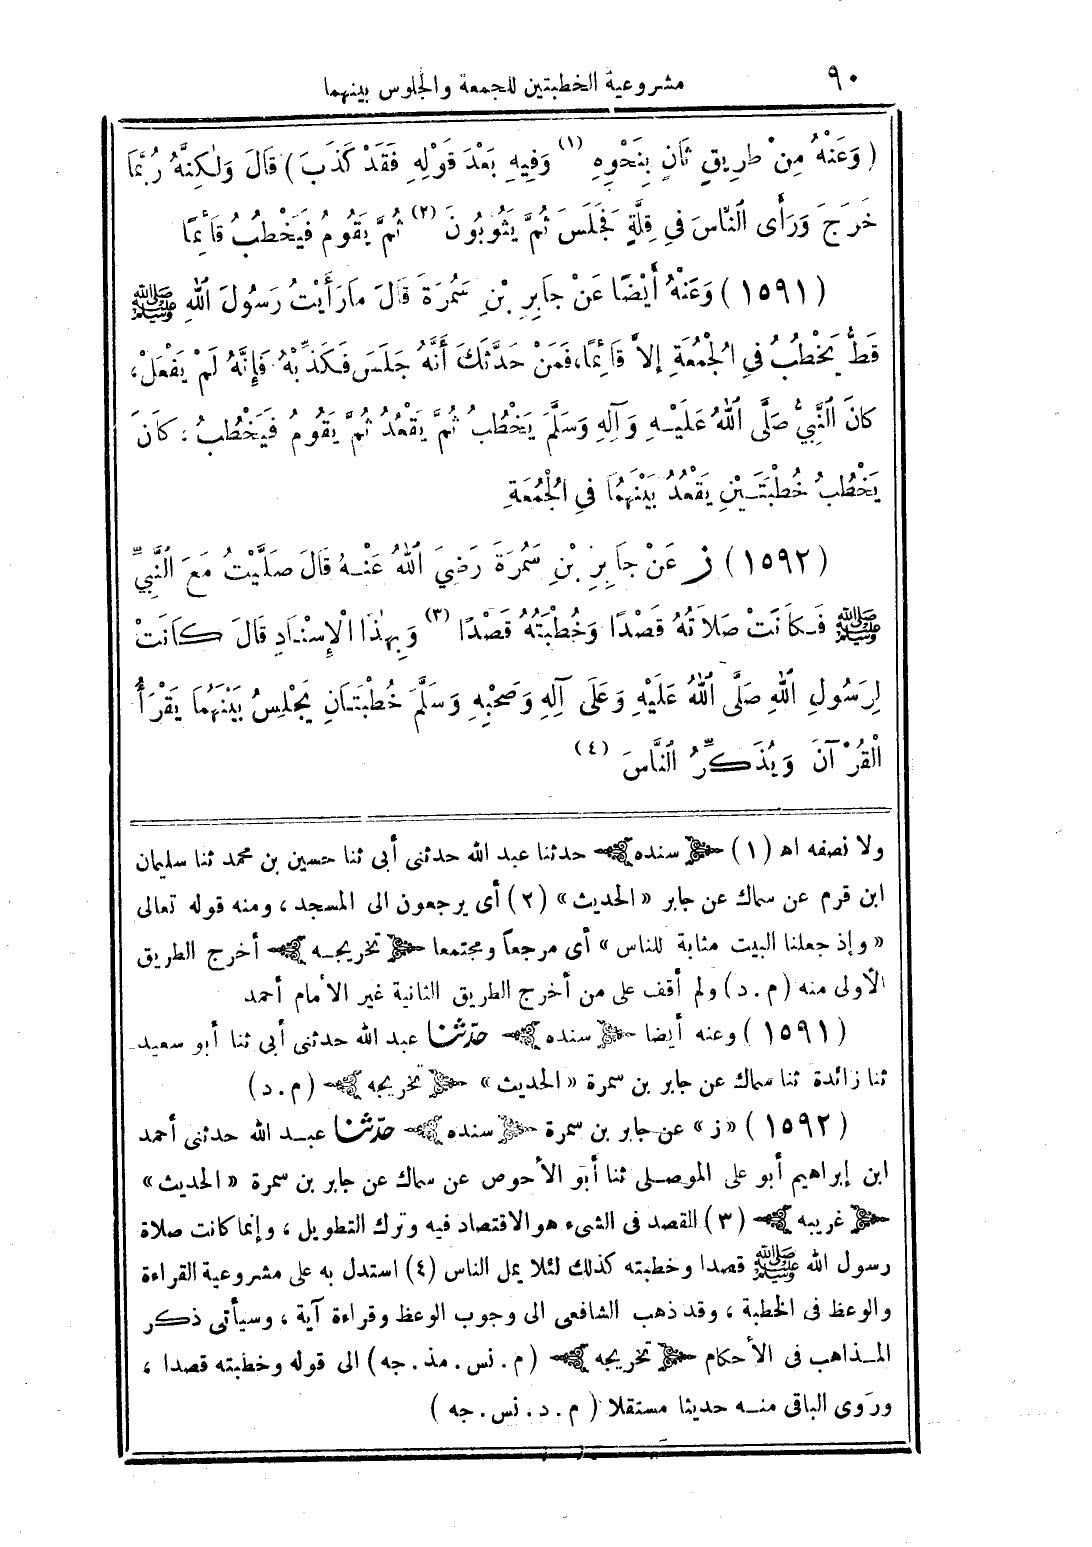 ٩٠ مشروعية الخطبتين للجمعة والجلوس بينهما
( وَعَنْهُ مِنْ طَرِيقٍ ثَانٍ بِنَحْوِهِ (١) وَفِيهِ بَعْدَ قَوْلِهِ فَقَدْ كَذَبَ ) قَالَ وَلٰكِنَّهُ رُبَّمَا
خَرَجَ وَرَأَى النَّاسَ فِي قِلَّةٍ فَجَلَسَ ثُمَّ يَثُوبُونَ (٢) ثُمَّ يَقُومُ فَيَخْطُبُ قَائِمًا
(١٥٩١) وَعَنْهُ أَيْضًا عَنْ جَابِرِ بْنِ سَمُرَةَ قَالَ مَا رَأَيْتُ رَسُولَ اللهِ ﷺ
قَطُّ يَخْطُبُ فِي الْجُمُعَةِ إِلاَّ قَائِمًا، فَمَنْ حَدَّثَكَ أَنَّهُ جَلَسَ فَكَذِّبْهُ فَإِنَّهُ لَمْ يَفْعَلْ،
كَانَ النَّبِيُّ صَلَّى اللهُ عَلَيْهِ وَآلِهِ وَسَلَّمَ يَخْطُبُ ثُمَّ يَقْعُدُ ثُمَّ يَقُومُ فَيَخْطُبُ، كَانَ
يَخْطُبُ خُطْبَتَيْنِ يَقْعُدُ بَيْنَهُمَا فِي الْجُمُعَةِ
(١٥٩٢) ز عَنْ جَابِرِ بْنِ سَمُرَةَ رَضِيَ اللهُ عَنْهُ قَالَ صَلَّيْتُ مَعَ النَّبِيِّ
ﷺ فَكَانَتْ صَلاَتُهُ قَصْدًا وَخُطْبَتُهُ قَصْدًا (٣) وَبِهٰذَا الْإِسْنَادِ قَالَ كَانَتْ
لِرَسُولِ اللهِ صَلَّى اللهُ عَلَيْهِ وَعَلَى آلِهِ وَصَحْبِهِ وَسَلَّمَ خُطْبَتَانِ يَجْلِسُ بَيْنَهُمَا يَقْرَأُ
الْقُرْآنَ وَيُذَكِّرُ النَّاسَ (٤)
ولا نصفه اه (١) سنده حدثنا عبد الله حدثنى أبى ثنا حسين بن محمد ثنا سليمان
ابن قرم عن سماك عن جابر «الحديث» (٢) أى يرجعون الى المسجد، ومنه قوله تعالى
«وإذ جعلنا البيت مثابة للناس» أى مرجعاً ومجتمعا تخريجه أخرج الطريق
الأولى منه (م . د) ولم أقف على من أخرج الطريق الثانية غير الأمام أحمد
(١٥٩١) وعنه أيضا سنده حدّثنا عبد الله حدثنى أبى ثنا أبو سعيد
ثنا زائدة ثنا سماك عن جابر بن سمرة «الحديث» تخريجه (م . د)
(١٥٩٢) «ز» عن جابر بن سمرة سنده حدّثنا عبد الله حدثنى أحمد
ابن إبراهيم أبو على الموصلى ثنا أبو الأحوص عن سماك عن جابر بن سمرة «الحديث»
غريبه (٣) القصد فى الشىء هو الاقتصاد فيه وترك التطويل، وإنما كانت صلاة
رسول الله ﷺ قصدا وخطبته كذلك لئلا يمل الناس (٤) استدل به على مشروعية القراءة
والوعظ فى الخطبة، وقد ذهب الشافعى الى وجوب الوعظ وقراءة آية، وسيأتى ذكر
المذاهب فى الأحكام تخريجه (م . نس . مذ . جه) الى قوله وخطبته قصدا،
وروى الباقى منه حديثا مستقلا (م . د . نس . جه)